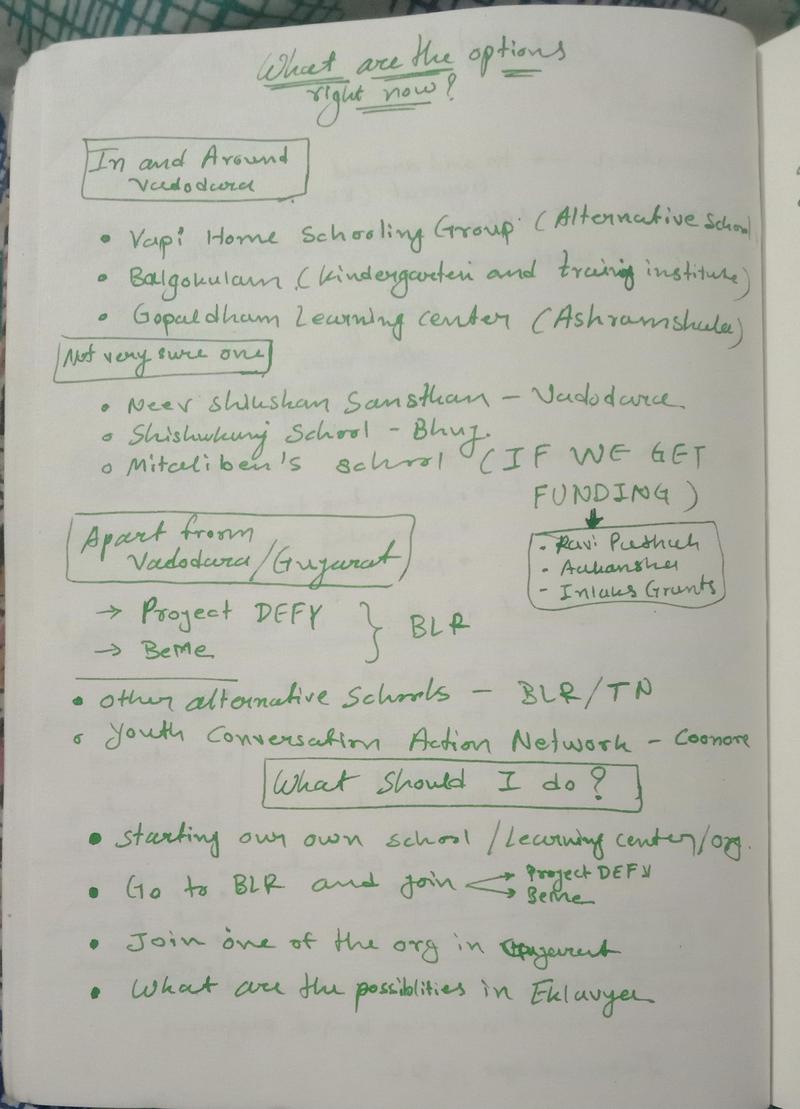 What are the options
right now?
In and Around
Vadodara
• Vapi Home Schooling Group (Alternative School
• Balgokulam (Kindergarten and training institute)
• Gopaldham Learning center (Ashramshala)
Not very sure one
• Neev Shikshan Sansthan - Vadodara
• Shishukunj School - Bhuj.
• Mitaliben's school (IF WE GET
FUNDING)
- Ravi
- Aakansha
- Inlaks Grants
Apart from
Vadodara/Gujarat
→ Project DEFY
→ BeMe
} BLR
• Other alternative Schools - BLR/TN
• Youth Conversation Action Network - Coonore
What Should I do?
• Starting our own school / Learning center/org.
• Go to BLR and join → Project DEFY
→ BeMe
• Join one of the org in Gujarat
• What are the possiblities in Eklavya